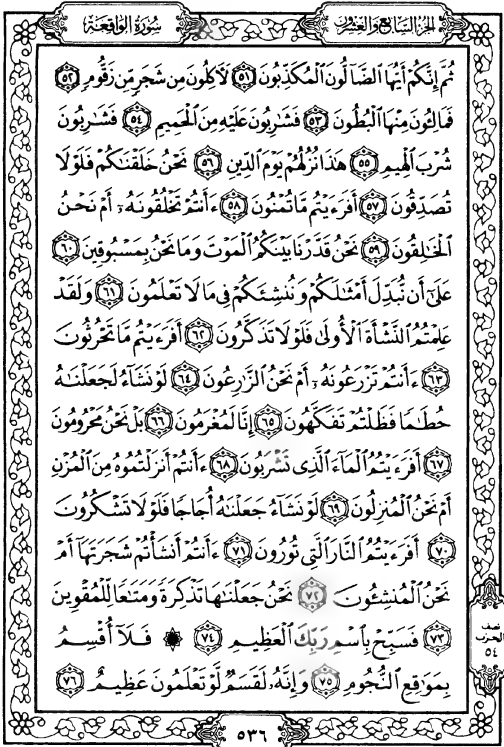 سُورَةُ الوَاقِعَة
الجُزءُ السَّابِعُ وَالعِشْرُون
ثُمَّ إِنَّكُمْ أَيُّهَا ٱلضَّآلُّونَ ٱلْمُكَذِّبُونَ ﴿٥١﴾ لَأَكِلُونَ مِن شَجَرٍ مِّن زَقُّومٍ ﴿٥٢﴾
فَمَالِـُٔونَ مِنْهَا ٱلْبُطُونَ ﴿٥٣﴾ فَشَٰرِبُونَ عَلَيْهِ مِنَ ٱلْحَمِيمِ ﴿٥٤﴾ فَشَٰرِبُونَ
شُرْبَ ٱلْهِيمِ ﴿٥٥﴾ هَٰذَا نُزُلُهُمْ يَوْمَ ٱلدِّينِ ﴿٥٦﴾ نَحْنُ خَلَقْنَٰكُمْ فَلَوْلَا
تُصَدِّقُونَ ﴿٥٧﴾ أَفَرَءَيْتُم مَّا تُمْنُونَ ﴿٥٨﴾ ءَأَنتُمْ تَخْلُقُونَهُۥٓ أَمْ نَحْنُ
ٱلْخَٰلِقُونَ ﴿٥٩﴾ نَحْنُ قَدَّرْنَا بَيْنَكُمُ ٱلْمَوْتَ وَمَا نَحْنُ بِمَسْبُوقِينَ ﴿٦٠﴾
عَلَىٰٓ أَن نُّبَدِّلَ أَمْثَٰلَكُمْ وَنُنشِئَكُمْ فِى مَا لَا تَعْلَمُونَ ﴿٦١﴾ وَلَقَدْ
عَلِمْتُمُ ٱلنَّشْأَةَ ٱلْأُولَىٰ فَلَوْلَا تَذَكَّرُونَ ﴿٦٢﴾ أَفَرَءَيْتُم مَّا تَحْرُثُونَ
﴿٦٣﴾ ءَأَنتُمْ تَزْرَعُونَهُۥٓ أَمْ نَحْنُ ٱلزَّٰرِعُونَ ﴿٦٤﴾ لَوْ نَشَآءُ لَجَعَلْنَٰهُ
حُطَٰمًا فَظَلْتُمْ تَفَكَّهُونَ ﴿٦٥﴾ إِنَّا لَمُغْرَمُونَ ﴿٦٦﴾ بَلْ نَحْنُ مَحْرُومُونَ
﴿٦٧﴾ أَفَرَءَيْتُمُ ٱلْمَآءَ ٱلَّذِى تَشْرَبُونَ ﴿٦٨﴾ ءَأَنتُمْ أَنزَلْتُمُوهُ مِنَ ٱلْمُزْنِ
أَمْ نَحْنُ ٱلْمُنزِلُونَ ﴿٦٩﴾ لَوْ نَشَآءُ جَعَلْنَٰهُ أُجَاجًا فَلَوْلَا تَشْكُرُونَ
﴿٧٠﴾ أَفَرَءَيْتُمُ ٱلنَّارَ ٱلَّتِى تُورُونَ ﴿٧١﴾ ءَأَنتُمْ أَنشَأْتُمْ شَجَرَتَهَآ أَمْ
نَحْنُ ٱلْمُنشِـُٔونَ ﴿٧٢﴾ نَحْنُ جَعَلْنَٰهَا تَذْكِرَةً وَمَتَٰعًا لِّلْمُقْوِينَ
﴿٧٣﴾ فَسَبِّحْ بِٱسْمِ رَبِّكَ ٱلْعَظِيمِ ﴿٧٤﴾ ۞ فَلَآ أُقْسِمُ
بِمَوَٰقِعِ ٱلنُّجُومِ ﴿٧٥﴾ وَإِنَّهُۥ لَقَسَمٌ لَّوْ تَعْلَمُونَ عَظِيمٌ ﴿٧٦﴾
نصف
الحزب
٥٤
٥٣٦